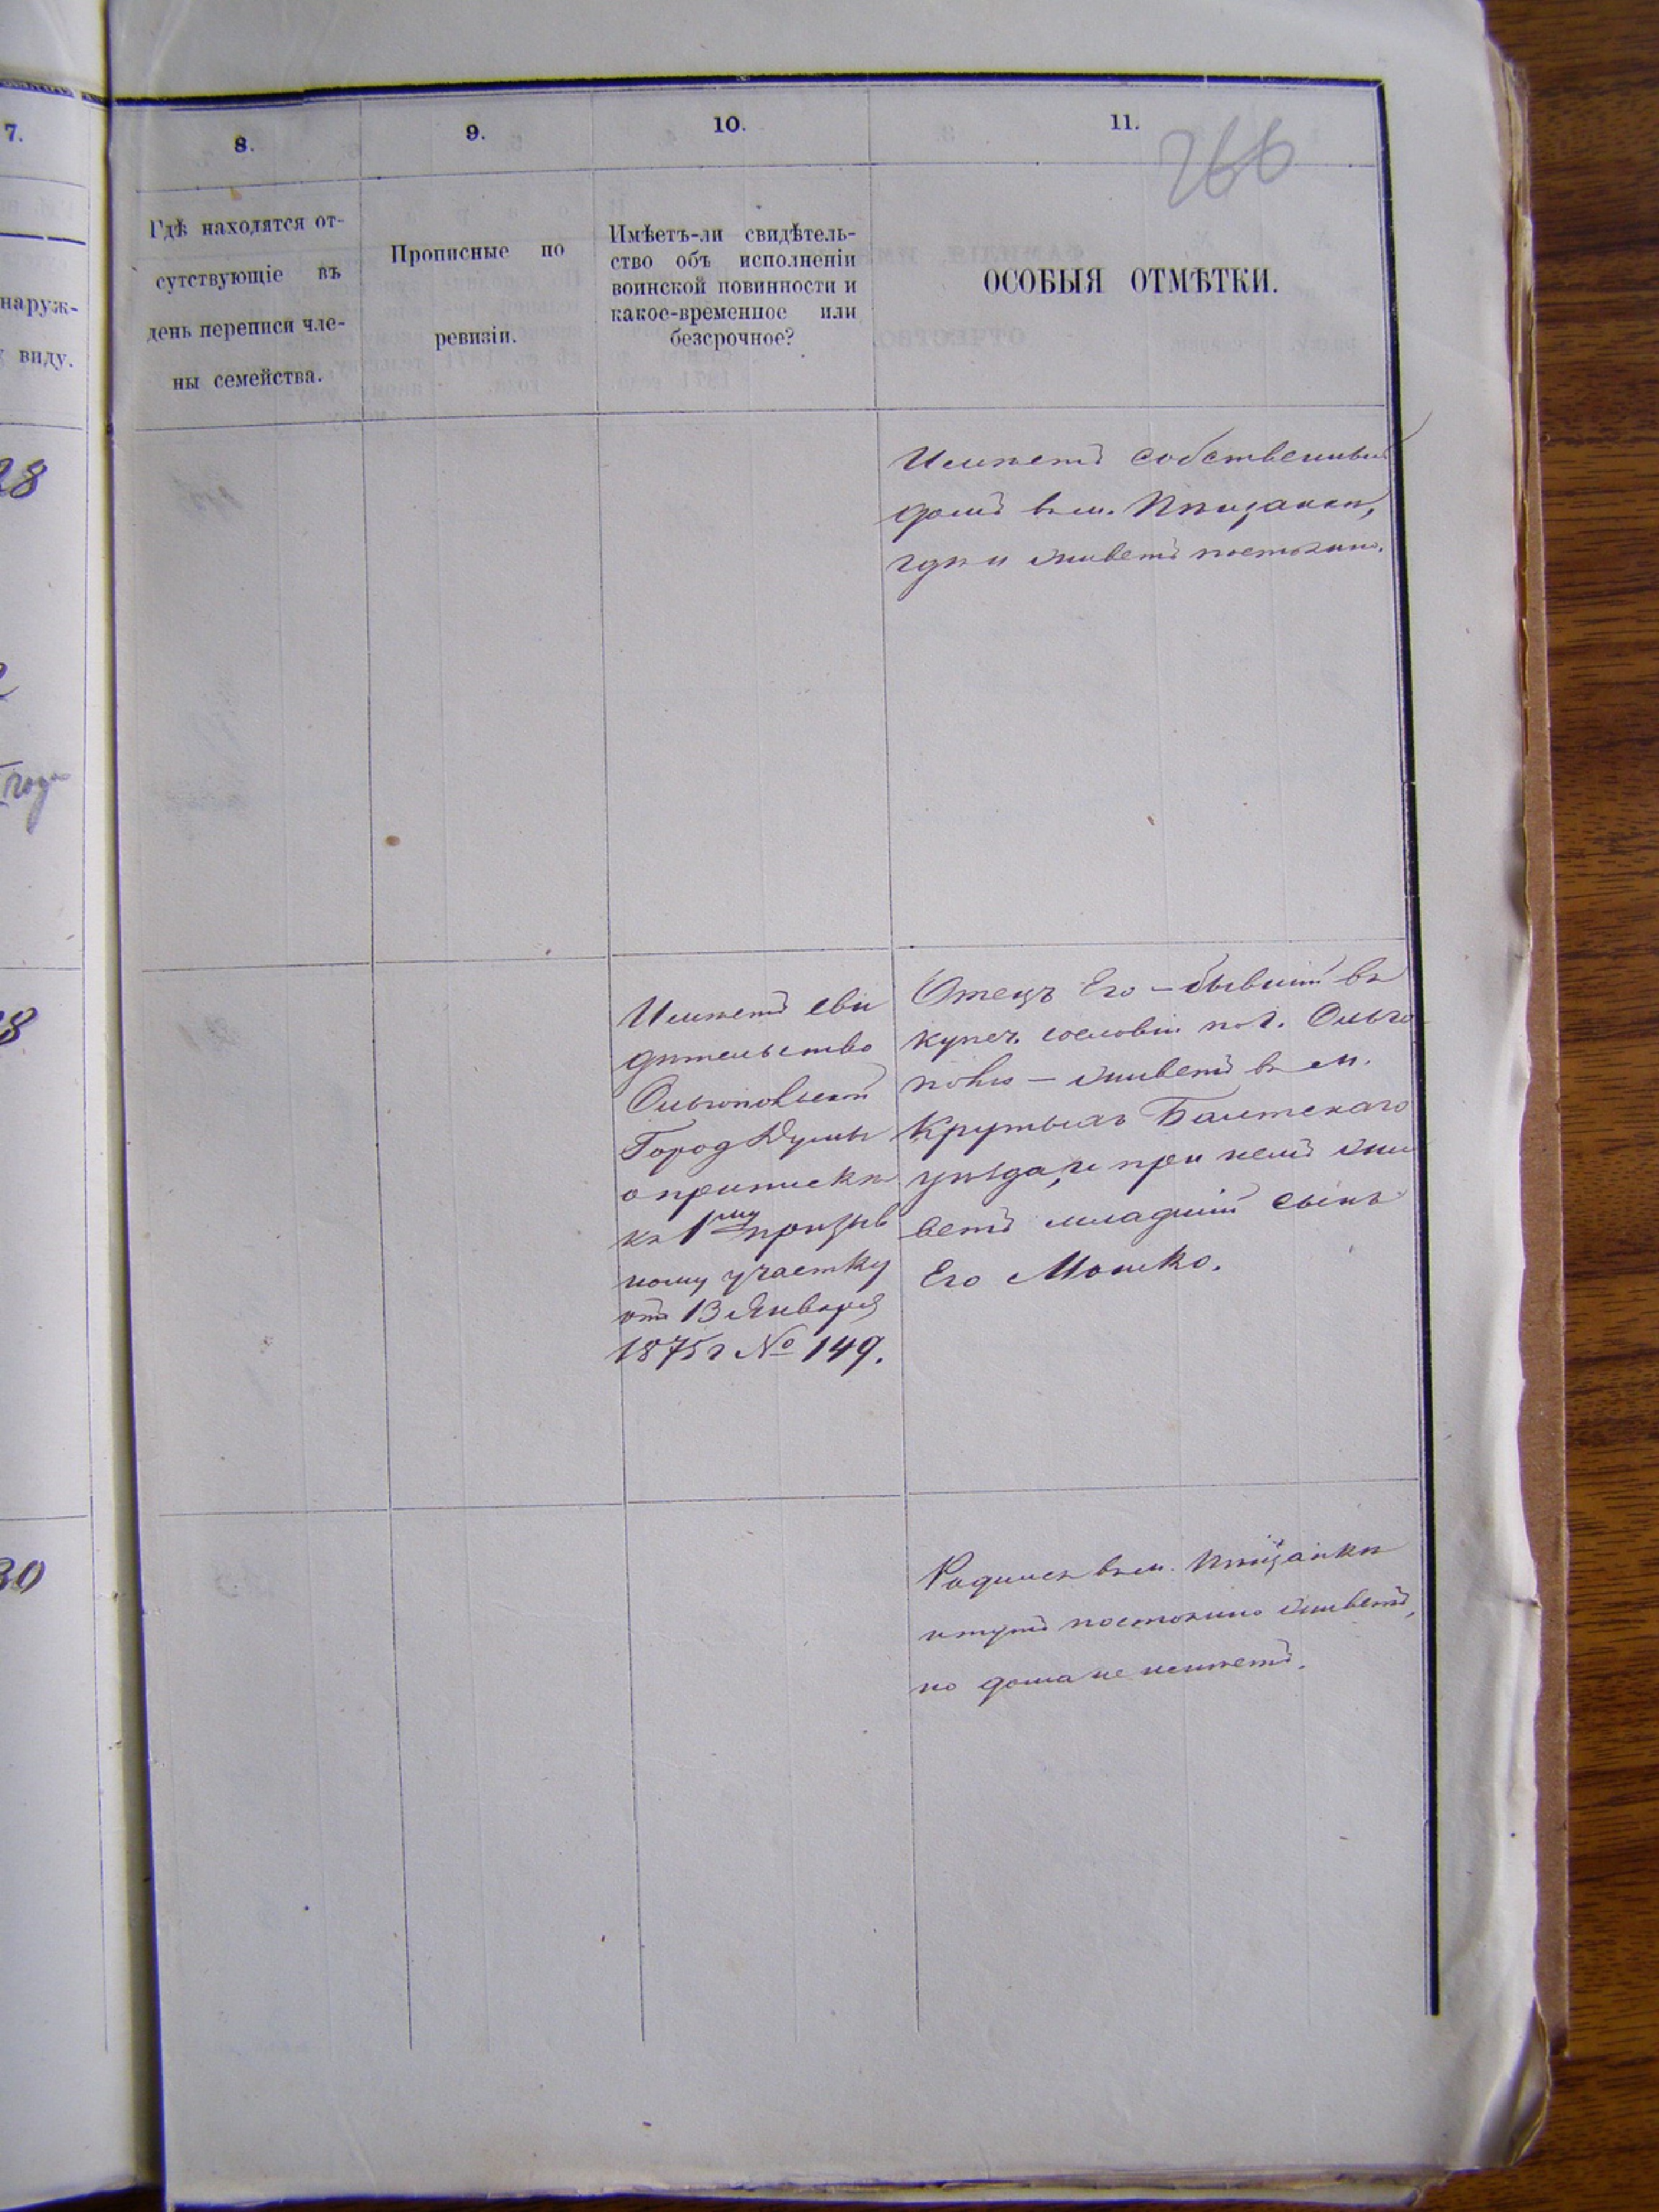 7.
8.
9.
10.
11.
266
наруж-
виду.
Гдѣ находятся от-
сутствующіе въ
день переписи чле-
ны семейства.
Прописные по
ревизіи.
Имѣетъ-ли свидѣтель-
ство объ исполненіи
воинской повинности и
какое-временное или
безсрочное?
ОСОБЫЯ ОТМѢТКИ.
28
года
Имѣетъ собственный
домъ въ м. Пѣщанкѣ,
гдѣ и живетъ постоянно.
8
Имѣетъ сви
дѣтельство
Ольгопольской
Город Думы
о припискѣ
къ 1му призыв
ному участку
отъ 13 Января
1875 г № 149.
Отецъ Его – бывшій въ
купеч. сословіи по г. Ольго
полю – живетъ въ м.
Крутыхъ Балтскаго
уѣзда, и при немъ жи
ветъ младшій сынъ
Его Мошко.
30
Родился въ м. Пѣщанкѣ
и тутъ постоянно живетъ,
но дома не имѣетъ.